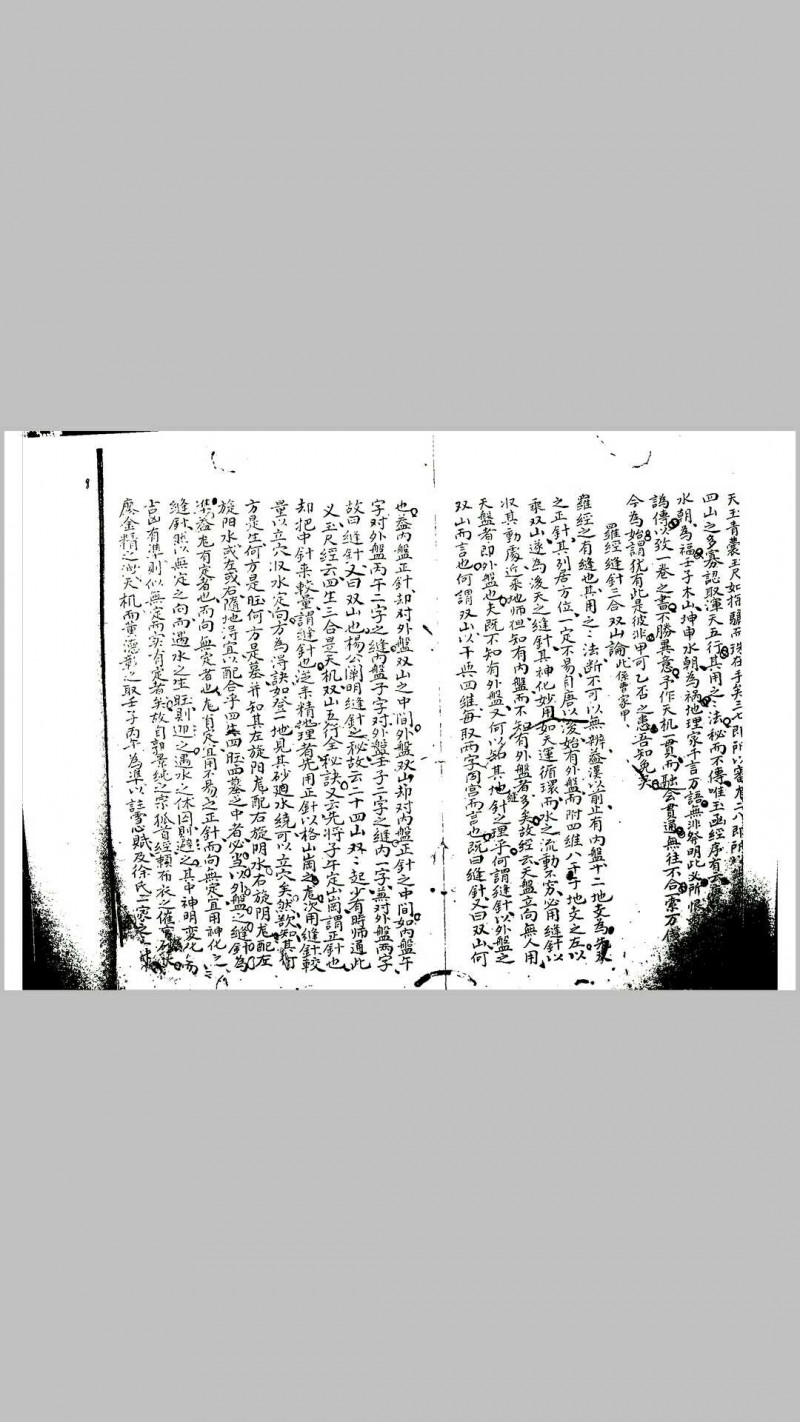 天玉青囊玉尺如指驪而珠在手矣三七即所以二八即所
四山之多寡認取渾天五行其用之〻法秘而不傳唯玉函經序有云
水朝為福壬子木山坤申水朝為禍地理家千言万語無非發明此必所恨
謌傳以致一卷之書不勝異意乎作天机一貫而融会貫通無往不合索万
今為始謂犹有此是彼非甲可乙否之患吾知免矣
羅經縫針三合双山論此係曹家甲
羅經之有縫也其用之〻法断不可以無辨葢漢以前止有内盤十二地支為先天
之正針其列居方位一定不易自唐以後始有外盤而附四維八干于地支之左以
乘双山遂為後天之縫針其神化妙用如天運循環而水之流動不穷必用縫針以
収其動處近来地师但知有内盤而不知有外盤者多矣故經云天盤立向無人用
天盤者即外盤也夫既不知有外盤又何以知其地針之理乎何謂縫針以外盤之
双山而言也何謂双山以干與四維每取两字同宫而言也既曰縫針又曰双山何
也葢内盤正針却对外盤双山之中间外盤双山却对内盤正針之中间如内盤午
字对外盤丙午二字之縫内盤子字对外盤壬子二字之縫内一字兼对外盤两字
故曰縫針又曰双山也楊公阐明縫針之秘故云二十四山双〻起少有時师通此
义玉尺經云四生三合是天机双山五行全秘訣又云先将子午定山岡謂正針也
却把中針来較量謂縫針也逆来精地理者先用正針以格山崗之龙次用縫針較
量以立穴収水定向方為得訣如登一地見其砂廻水绕可以立穴矣然欲知其何
方是生何方是旺何方是墓并知其左旋阳龙配右旋阴水右旋阴龙配左
旋阳水或左或右随地得宜以配合乎四生四旺四墓之中者必当以外盤之縫針為
準葢龙有定者也而向無定者也龙有定宜用不易之正針而向無定宜用神化之
縫針然以無定之向而遇水之生旺則迎之遇水之休囚則避之其中神明变化
吉凶有準則似無定而实有定者矣故自郭景纯之宗狐首經賴布衣之催官
廖金精之泄天机而黄德彰之取壬子丙午為準以註雪心賦及徐氏二家之